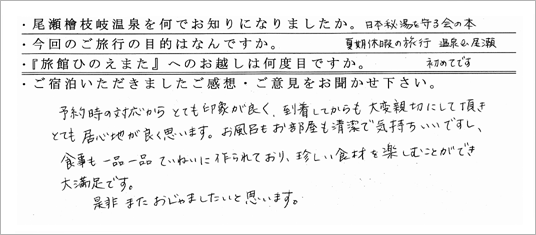 ・尾瀬檜枝岐温泉を何でお知りになりましたか。日本秘湯を守る会の本
・今回のご旅行の目的はなんですか。 夏期休暇の旅行 温泉&尾瀬
・『旅館ひのえまた』へのお越しは何度目ですか。 初めてです
・ご宿泊いただきましたご感想・ご意見をお聞かせ下さい。
予約時の対応から とても印象が良く、到着してからも 大変親切にして頂き
とても 居心地が良く思います。お風呂もお部屋も清潔で気持ちいいですし、
食事も 一品一品 ていねいに作られており、珍しい食材を楽しむことができ
大満足です。
是非 また おじゃましたいと思います。